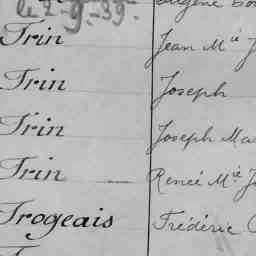 Eugène
le 2-9-39
Trin Jean M^ie J
Trin Joseph
Trin Joseph Ma
Trin Renée M^ie J
Trogeais Frédéric